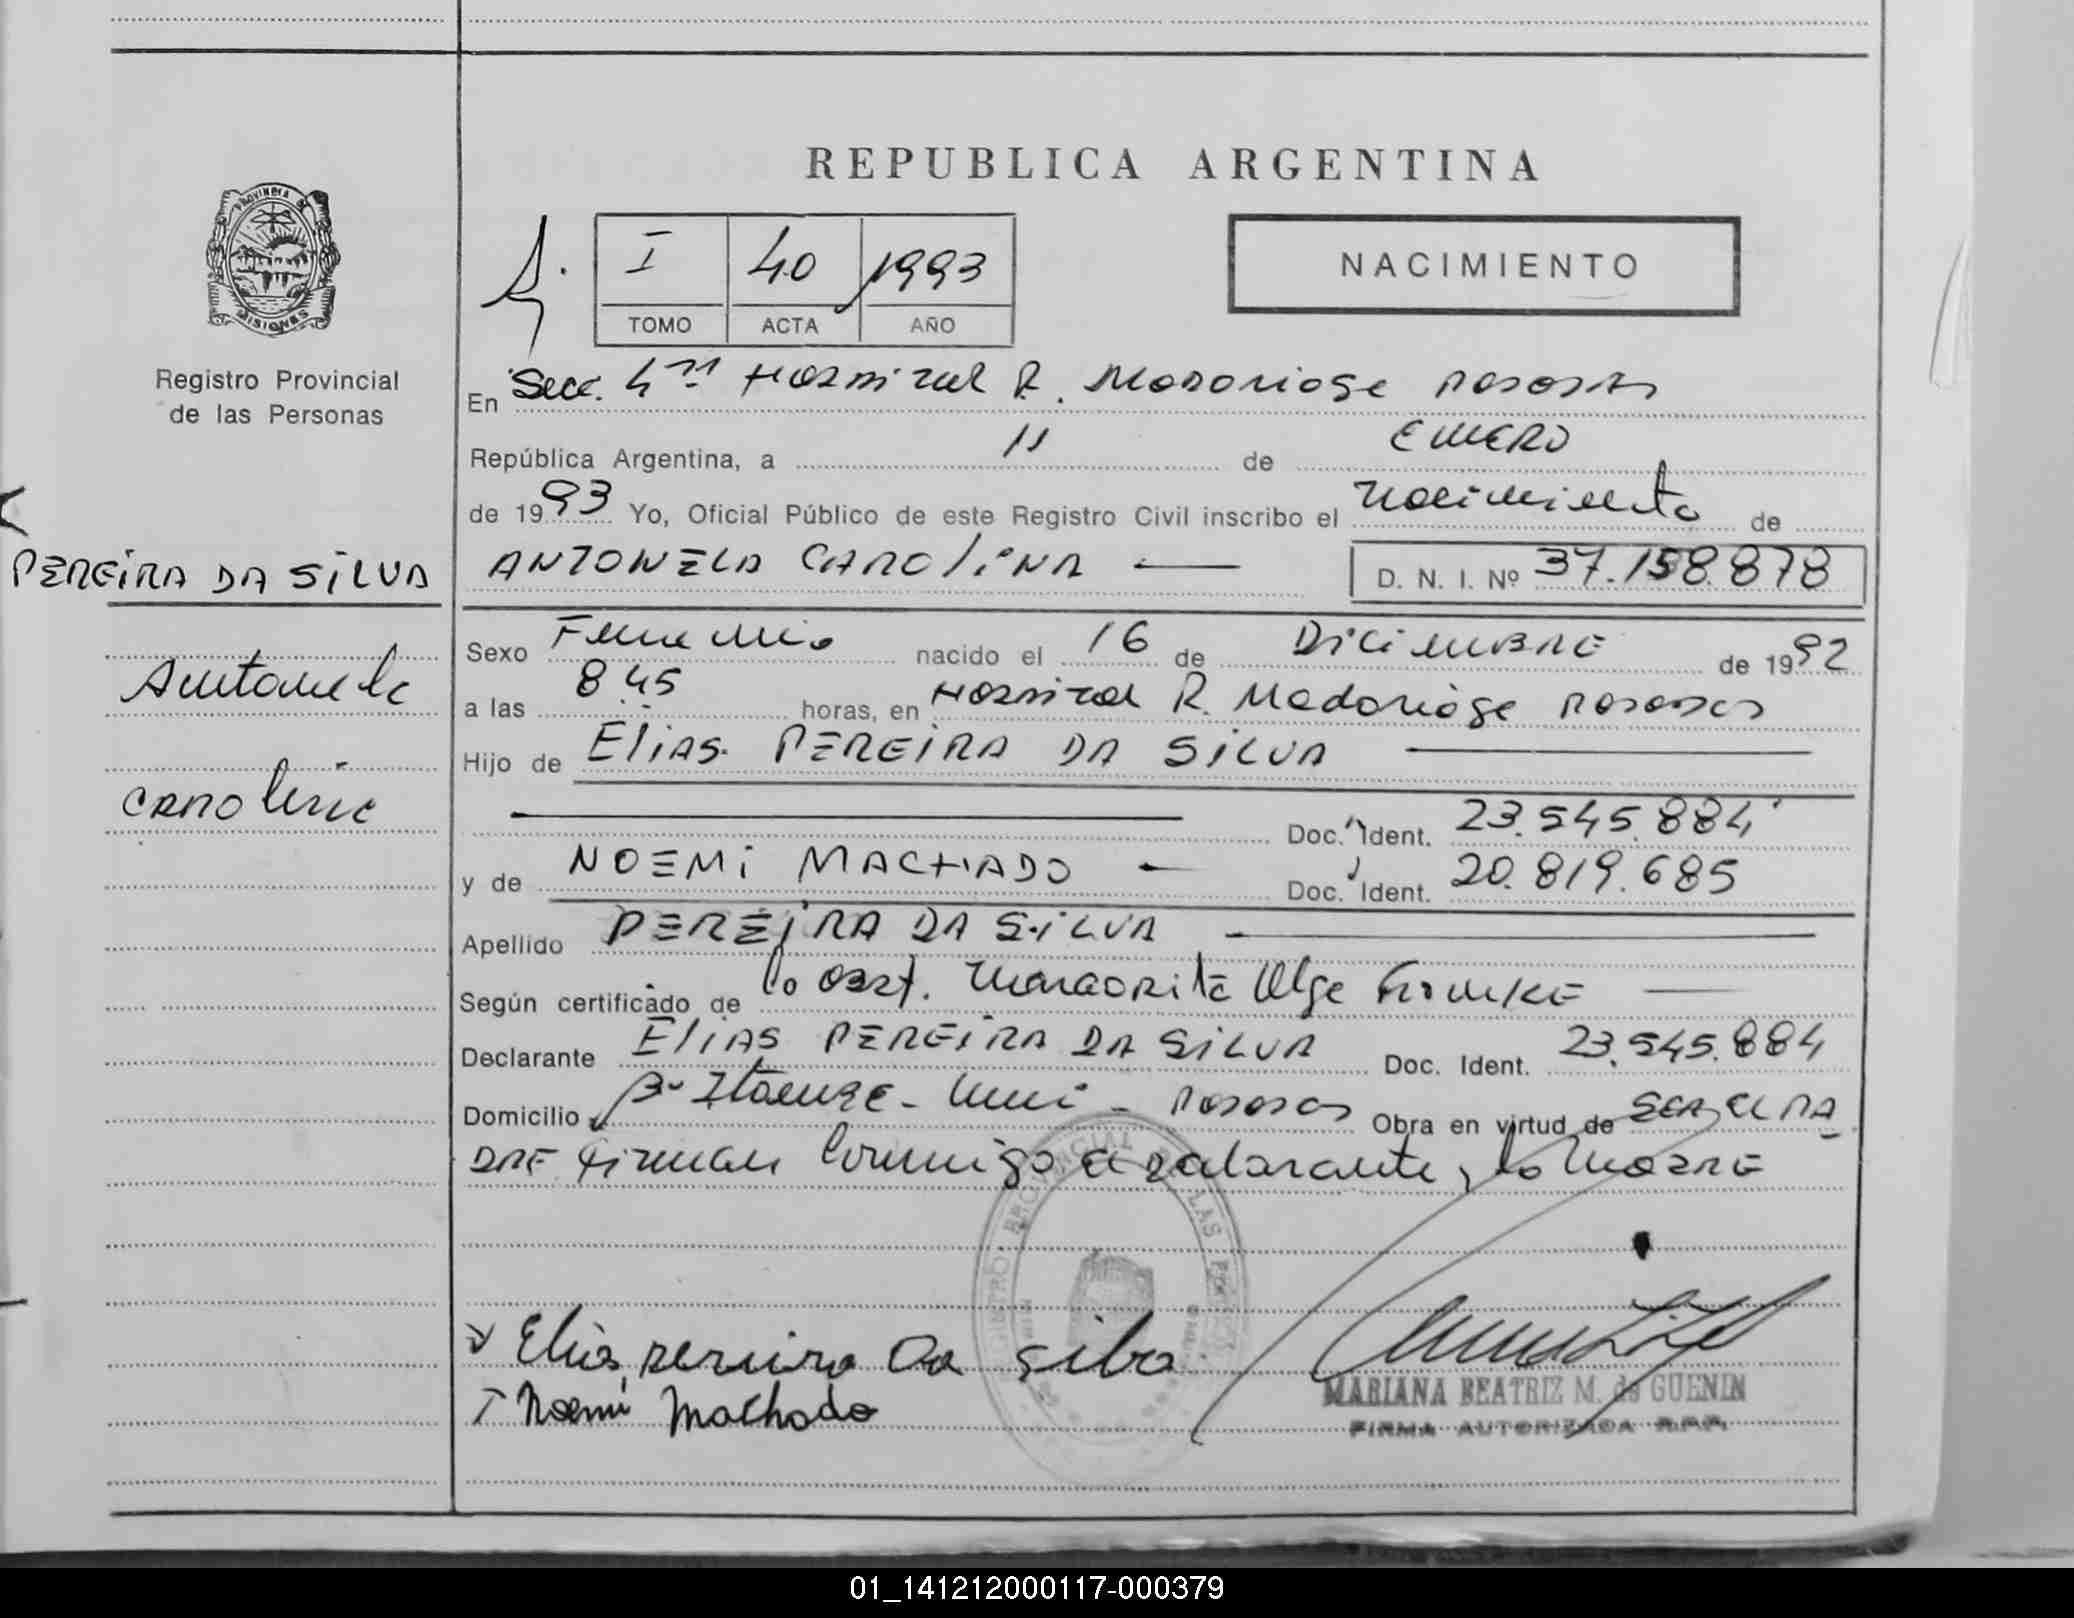 REPUBLICA ARGENTINA
PROVINCIA DE
MISIONES
Registro Provincial
de las Personas
I 40 1993
TOMO ACTA AÑO
NACIMIENTO
En Secc. 4ta Hospital R. Madariaga Posadas
República Argentina, a 11 de ENERO
de 1993 Yo, Oficial Público de este Registro Civil inscribo el Nacimiento de
PEREIRA DA SILVA
ANTONELA CAROLINA
D. N. I. Nº 37.158.878
Antonela
Carolina
Sexo Femenino nacido el 16 de DiciEMBRE de 1992
a las 8 45 horas, en Hospital R. Madariaga Posadas
Hijo de Elias PEREIRA DA SILVA
Doc. Ident. 23.545.884
y de NOEMi MACHADO Doc. Ident. 20.819.685
Apellido PEREIRA DA SILVA
Según certificado de la Obst. Margarita Olga
Declarante Elias PEREIRA DA SILVA Doc. Ident. 23.545.884
Domicilio Bº Itaembe - Mini - Posadas Obra en virtud de SER EL PA
DRE Firman Conmigo el declarante y la MADRE
REGISTRO PROVINCIAL DE LAS
Elias pereira Da silva
Noemi Machado
MARIANA BEATRIZ M. de GUENIN
FIRMA AUTORIZADA R.P.P.
01_141212000117-000379